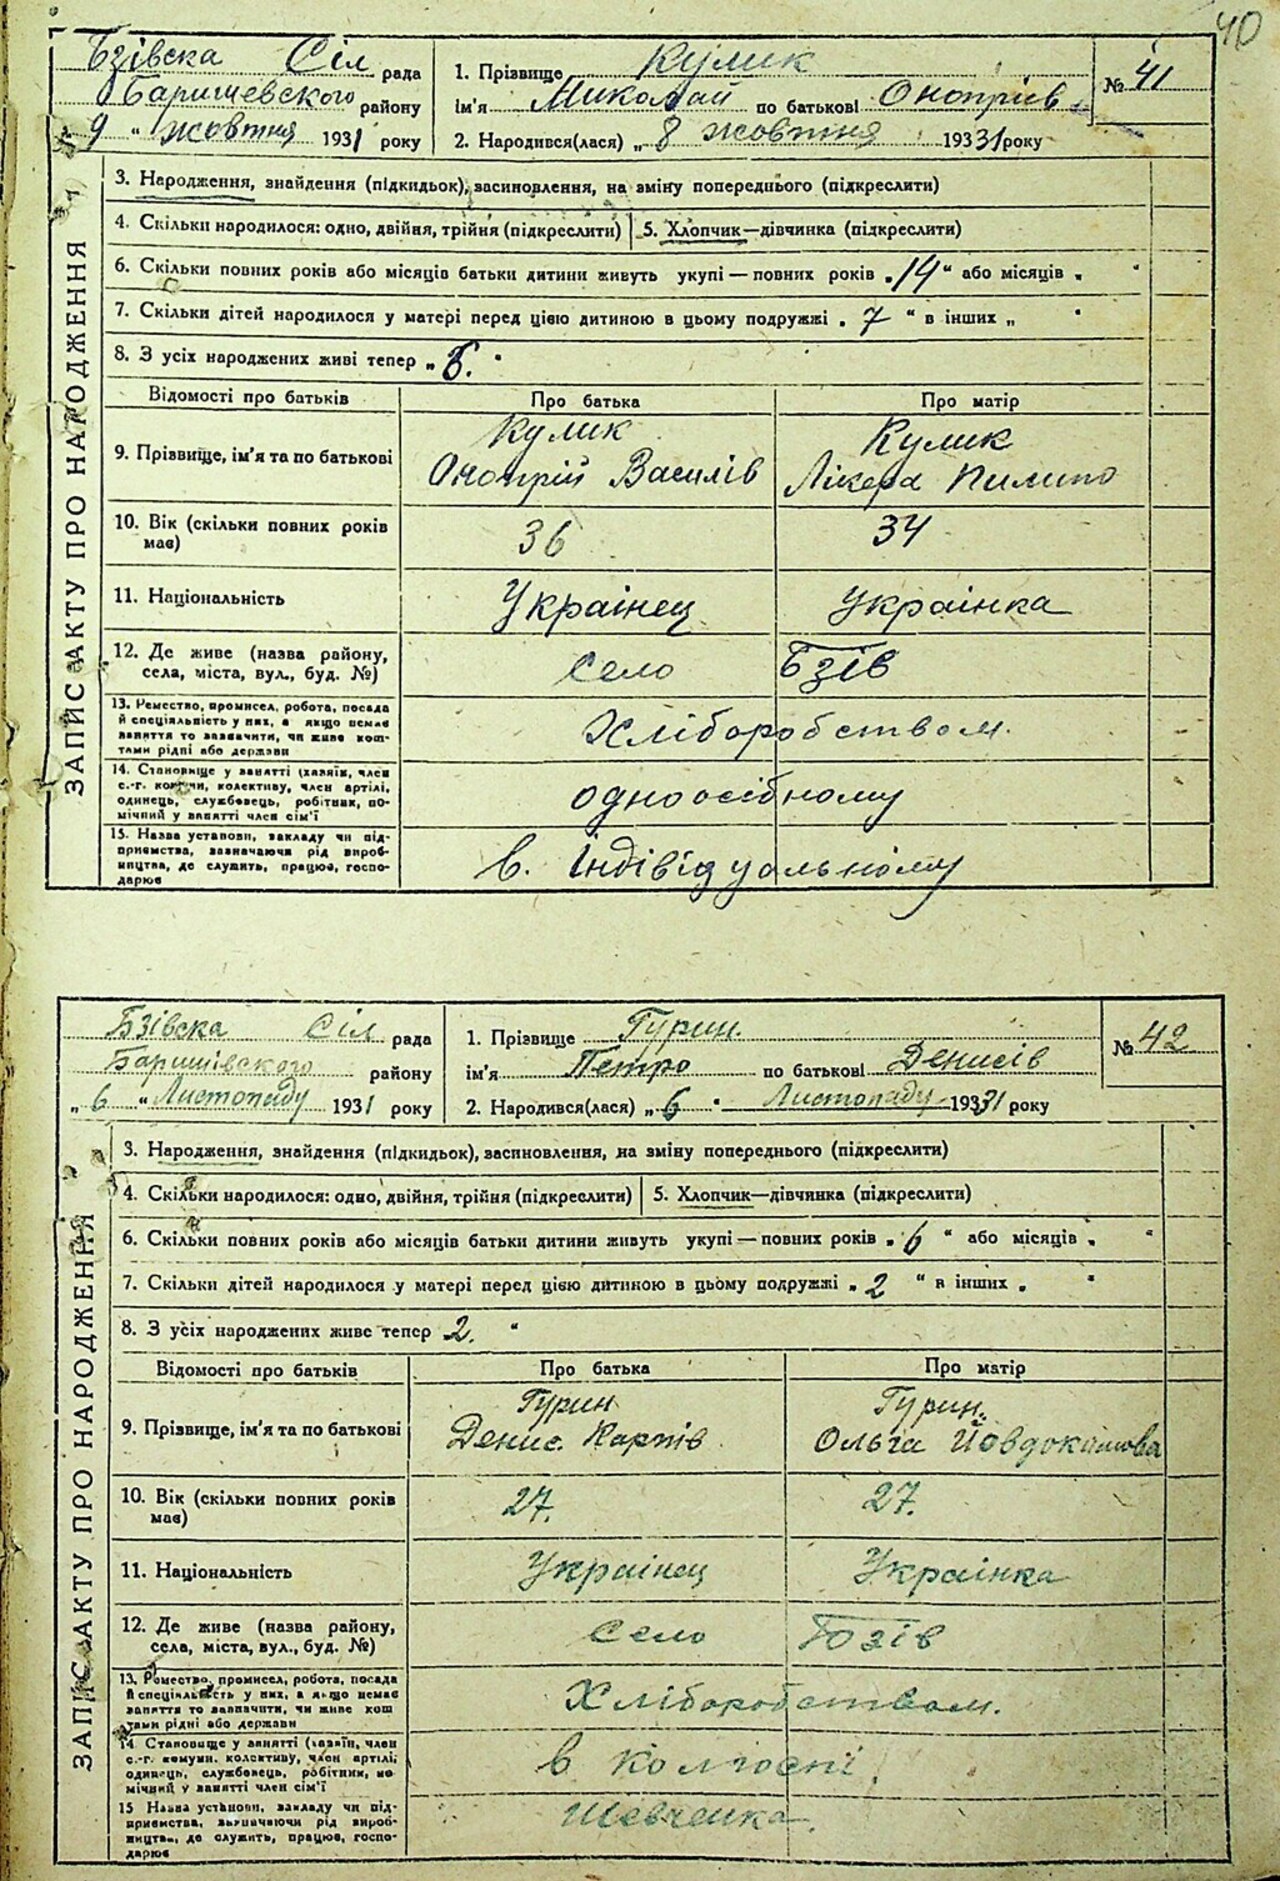 40
Бзівска Сіл рада
Баришевского району
„ 9 " жовтня 1931 року
1. Прізвище Кулик
ім'я Миколай по батькові Оноприів
2. Народився(лася) „ 8 жовтня 193 31 року
№ 41
ЗАПИС АКТУ ПРО НАРОДЖЕННЯ
3. Народження, знайдення (підкидьок), засиновлення, на зміну попереднього (підкреслити)
4. Скільки народилося: одно, двійня, трійня (підкреслити) 5. Хлопчик—дівчинка (підкреслити)
6. Скільки повних років або місяців батьки дитини живуть укупі — повних років „ 14 " або місяців „ "
7. Скільки дітей народилося у матері перед цією дитиною в цьому подружжі „ 7 " в інших „ "
8. З усіх народжених живі тепер „ 6. "
Відомості про батьків Про батька Про матір
9. Прізвище, ім'я та по батькові
Кулик
Оноприй Василів
Кулик
Лікера Пилипо
10. Вік (скільки повних років
має)
36 34
11. Національність Украінец Украінка
12. Де живе (назва району,
села, міста, вул., буд. №)
село Бзів
13. Ремество, промисел, робота, посада
й спеціяльність у них, а якщо немає
заняття то зазначити, чи живе кош-
тами рідні або держави
Хліборобством.
14. Становище у занятті (хазяїн, член
с.-г. комуни, колективу, член артілі,
одинець, службовець, робітник, по-
мічний у занятті член сім'ї
одноосібному
15. Назва установи, закладу чи під-
приємства, зазначаючи рід вироб-
ництва, де служить, працює, госпо-
дарює
в. Індівідуальному
Бзівска Сіл рада
Баришівского району
„ 6 " Листопаду 1931 року
1. Прізвище Гурин.
ім'я Петро по батькові Денисів
2. Народився(лася) „ 6 " Листопаду 193 31 року
№ 42
ЗАПИС АКТУ ПРО НАРОДЖЕННЯ
3. Народження, знайдення (підкидьок), засиновлення, на зміну попереднього (підкреслити)
4. Скільки народилося: одно, двійня, трійня (підкреслити) 5. Хлопчик—дівчинка (підкреслити)
6. Скільки повних років або місяців батьки дитини живуть укупі — повних років „ 6 " або місяців „ "
7. Скільки дітей народилося у матері перед цією дитиною в цьому подружжі „ 2 " в інших „ "
8. З усіх народжених живе тепер 2. "
Відомості про батьків Про батька Про матір
9. Прізвище, ім'я та по батькові
Гурин
Денис. Карпів
Гурин.
Ольга Йовдокимова
10. Вік (скільки повних років
має)
27. 27.
11. Національність Украінец Украінка
12. Де живе (назва району,
села, міста, вул., буд. №)
село Бзів
13. Ремество, промисел, робота, посада
й спеціяльність у них, а якщо немає
заняття то зазначити, чи живе кош
тами рідні або держави
Хліборобством.
14. Становище у занятті (хазяїн, член
с.-г. комуни. колективу, член артілі,
одинець, службовець, робітник, по
мічний у занятті член сім'ї
в колгоспі.
15 Назва установи, закладу чи під-
приємства, зазначаючи рід вироб-
ництва, де служить, працює, госпо-
дарює
Шевченка.